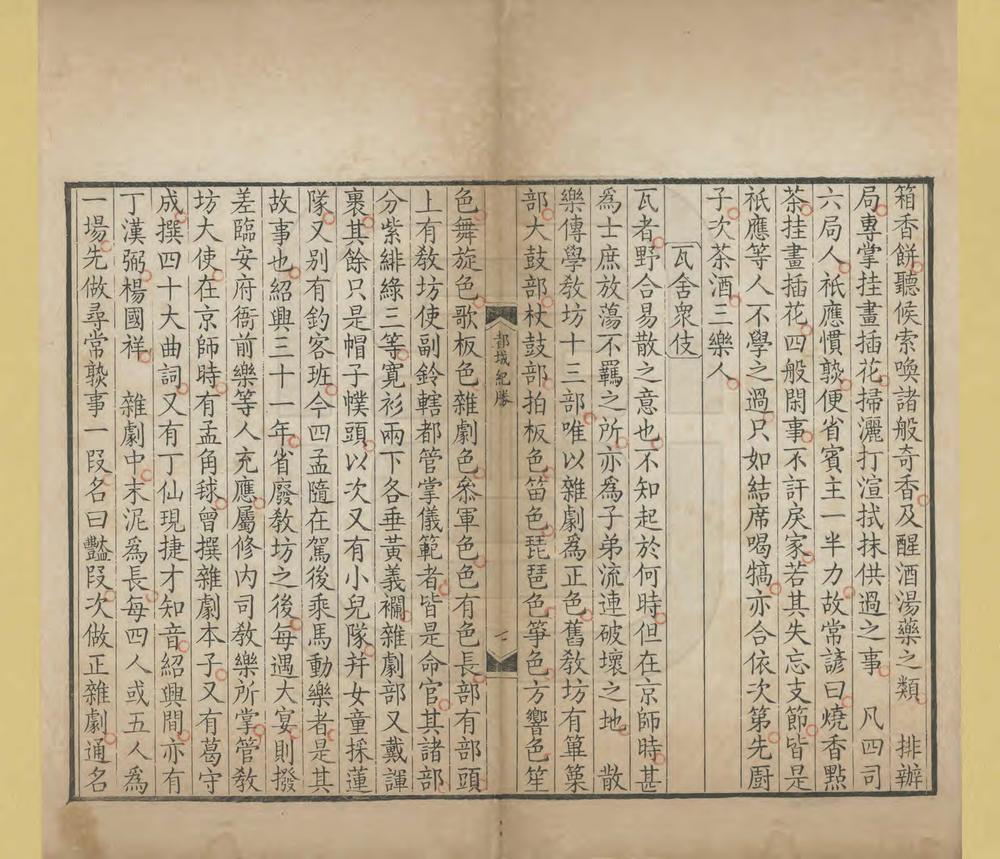 箱香餅聽候索喚諸般奇香及醒酒湯藥之類　排辦
局專掌挂畫插花掃灑打渲拭抹供過之事　凡四司
六局人祇應慣熟便省賓主一半力故常諺曰燒香點
茶挂畫插花四般閑事不訐戾家若其失忘支節皆是
祇應等人不學之過只如結席喝犒亦合依次第先厨
子次茶酒三樂人
瓦舍衆伎
瓦者野合易散之意也不知起於何時但在京師時甚
爲士庶放蕩不羈之所亦爲子弟流連破壞之地　散
樂傳學敎坊十三部唯以雜劇爲正色舊敎坊有篳篥
部大鼓部杖鼓部拍板色笛色琵琶色箏色方響色笙
都城紀勝
七
色舞旋色歌板色雜劇色參軍色色有色長部有部頭
上有敎坊使副鈴轄都管掌儀範者皆是命官其諸部
分紫緋綠三等寬衫兩下各垂黃義襴雜劇部又戴諢
裹其餘只是帽子幞頭以次又有小兒隊并女童採蓮
隊又别有釣客班今四孟隨在駕後乘馬動樂者是其
故事也紹興三十一年省廢敎坊之後每遇大宴則撥
差臨安府衙前樂等人充應屬修内司敎樂所掌管敎
坊大使在京師時有孟角毬曾撰雜劇本子又有葛守
成撰四十大曲詞又有丁仙現捷才知音紹興間亦有
丁漢弼楊國祥　雜劇中末泥爲長每四人或五人爲
一場先做尋常熟事一段名曰豔段次做正雜劇通名